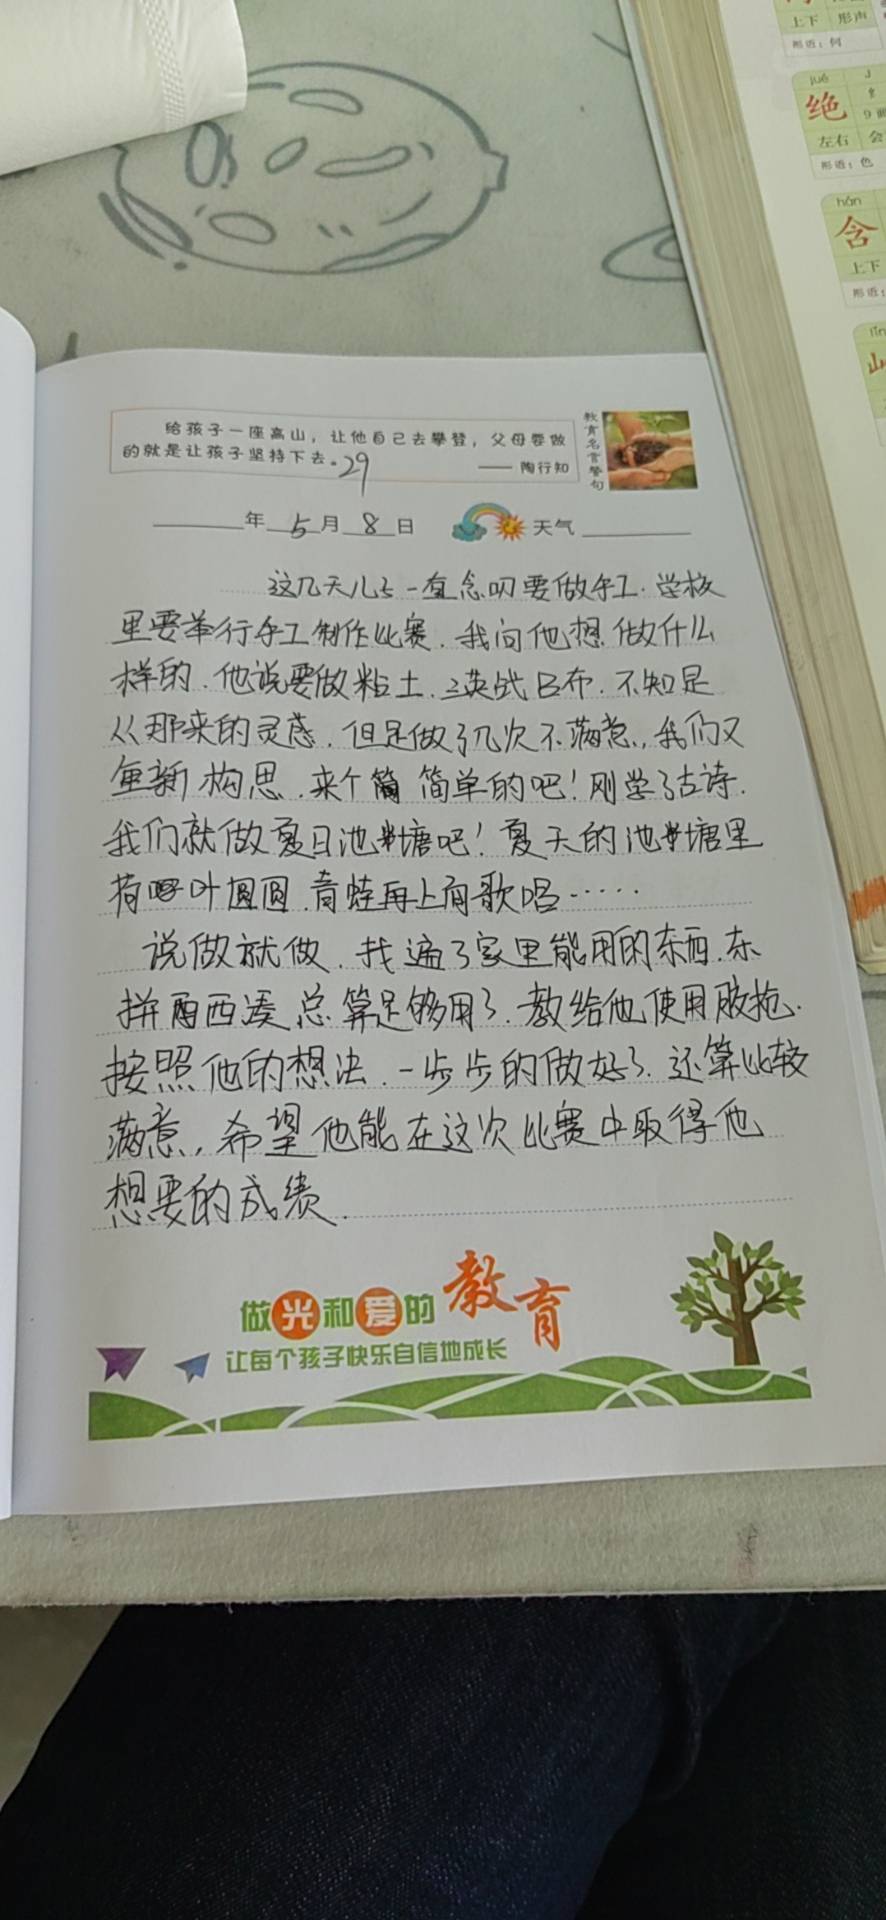 上下 形声
形近：何
jué
绝
9画
左右 会
形近：色
hán
含
上下
形近：
给孩子一座高山，让他自己去攀登，父母要做
的就是让孩子坚持下去。29
—— 陶行知
教育名言警句
年 5 月 8 日 天气
这几天儿子一直念叨要做手工.学校
里要举行手工制作比赛.我问他想做什么
样的.他说要做粘土.三英战吕布.不知是
从那来的灵感.但是做了几次不满意,我们又
重新构思.来个简单的吧!刚学了古诗.
我们就做夏日池塘吧!夏天的池塘里
荷叶圆圆.青蛙再上面歌唱……
说做就做.找遍了家里能用的东西.东
拼西凑总算是够用了.教给他使用胶枪.
按照他的想法.一步步的做好了.还算比较
满意,希望他能在这次比赛中取得他
想要的成绩.
做光和爱的教育
让每个孩子快乐自信地成长